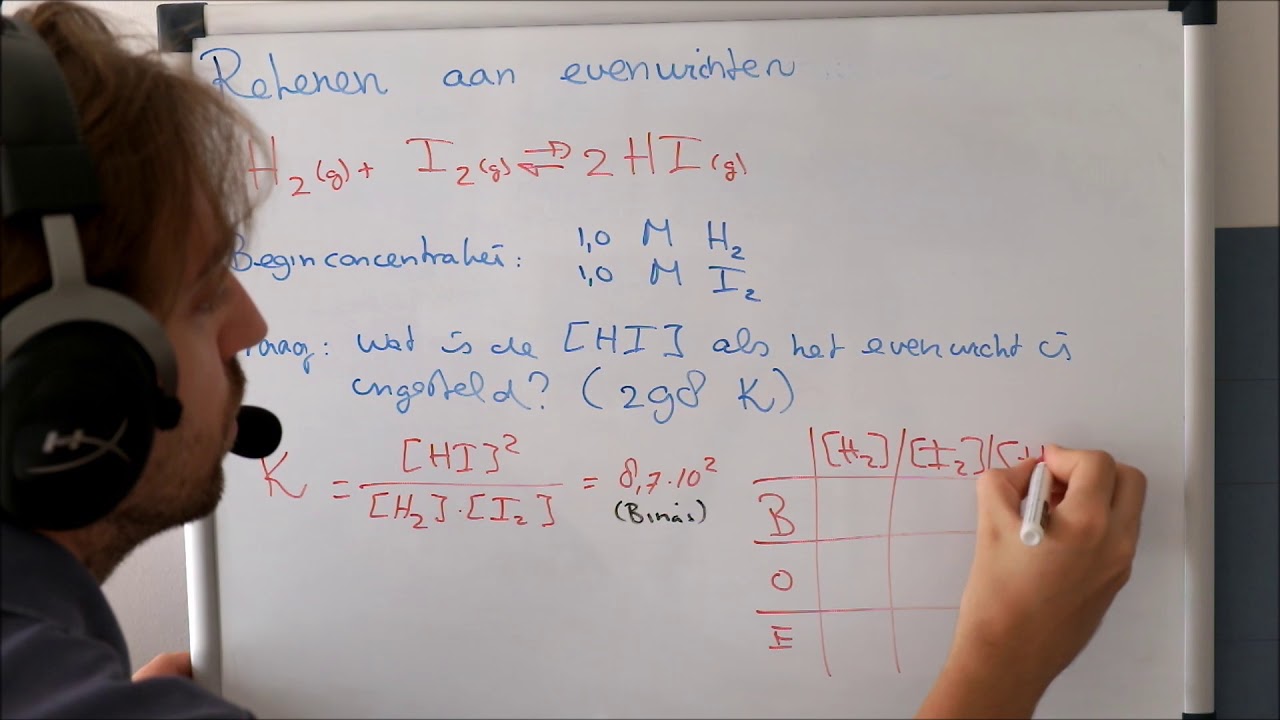 Rekenen aan evenwichten
H₂(g) + I₂(g) ⇌ 2HI(g)
Beginconcentratie: 1,0 M H₂
1,0 M I₂
Vraag: Wat is de [HI] als het evenwicht is
ingesteld? (298 K)
K = [HI]² / [H₂]·[I₂] = 8,7·10²
(Binas)
[H₂] [I₂]
B
O
E